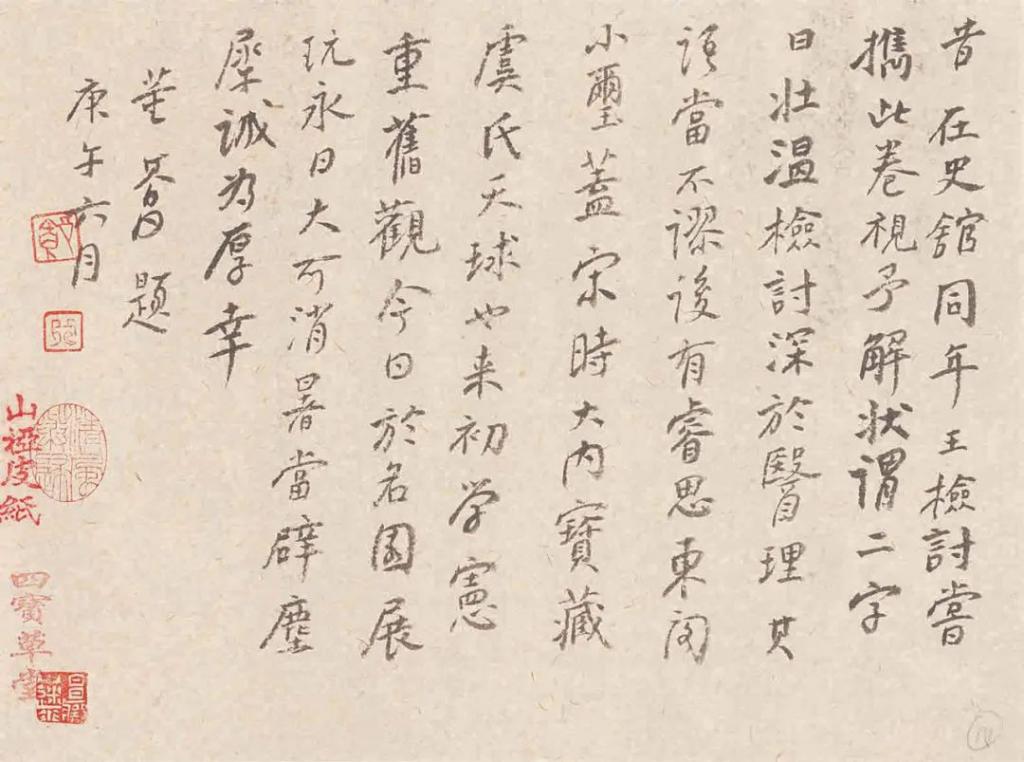 昔在史館同年王檢討嘗
攜此卷視予解狀謂二字
曰壯溫檢討深於醫理其
語當不謬後有睿思東閣
小璽蓋宋時大内寶藏
虞氏天球也来初学憲
重舊觀今日於名園展
玩永日大可消暑當辟塵
犀誠為厚幸
董其昌題
庚午六月
山椏皮紙
四寶草堂